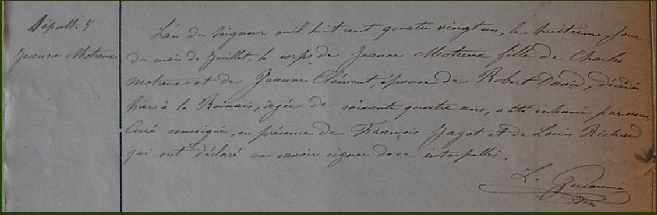 Sépult. 8
Jeanne Motreux
L'an du Seigneur mil huit cent quatre vingt un, le huitième jour
du mois de juillet, le corps de Jeanne Motreux fille de Charles
Motreux et de Jeanne Clément, épouse de Robert David, décédée
hier à la Roinais, âgée de soixante quatre ans, a été inhumé par nous,
Curé soussigné, en présence de François Jagot et de Louis Richard
qui ont déclaré ne savoir signer de ce interpellés.
L.